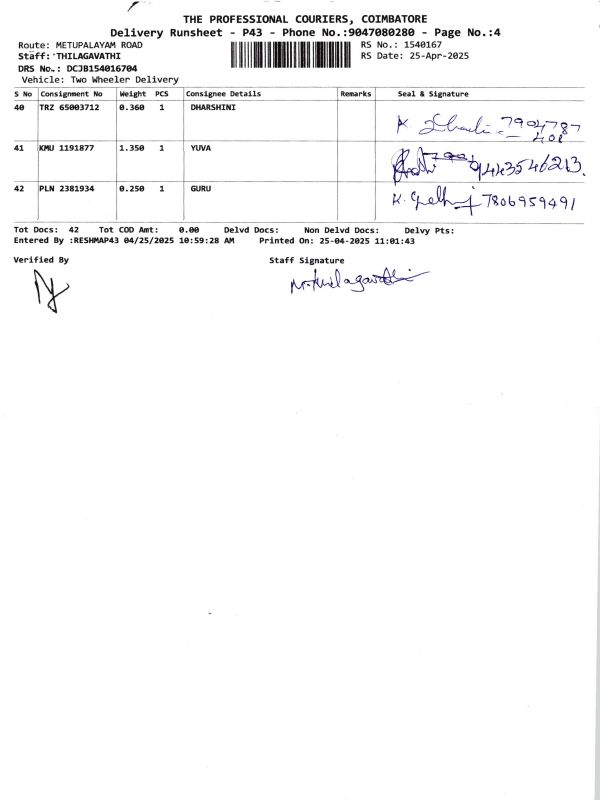 THE PROFESSIONAL COURIERS, COIMBATORE
Delivery Runsheet - P43 - Phone No.:9047080280 - Page No.:4
Route: METUPALAYAM ROAD RS No.: 1540167
Staff: THILAGAVATHI RS Date: 25-Apr-2025
DRS No.: DCJB154016704
Vehicle: Two Wheeler Delivery
S No Consignment No Weight PCS Consignee Details Remarks Seal & Signature
40 TRZ 65003712 0.360 1 DHARSHINI
K 7904787
401
41 KMU 1191877 1.350 1 YUVA
9443546213.
42 PLN 2381934 0.250 1 GURU
K. 7806959491
Tot Docs: 42 Tot COD Amt: 0.00 Delvd Docs: Non Delvd Docs: Delvy Pts:
Entered By :RESHMAP43 04/25/2025 10:59:28 AM Printed On: 25-04-2025 11:01:43
Verified By Staff Signature